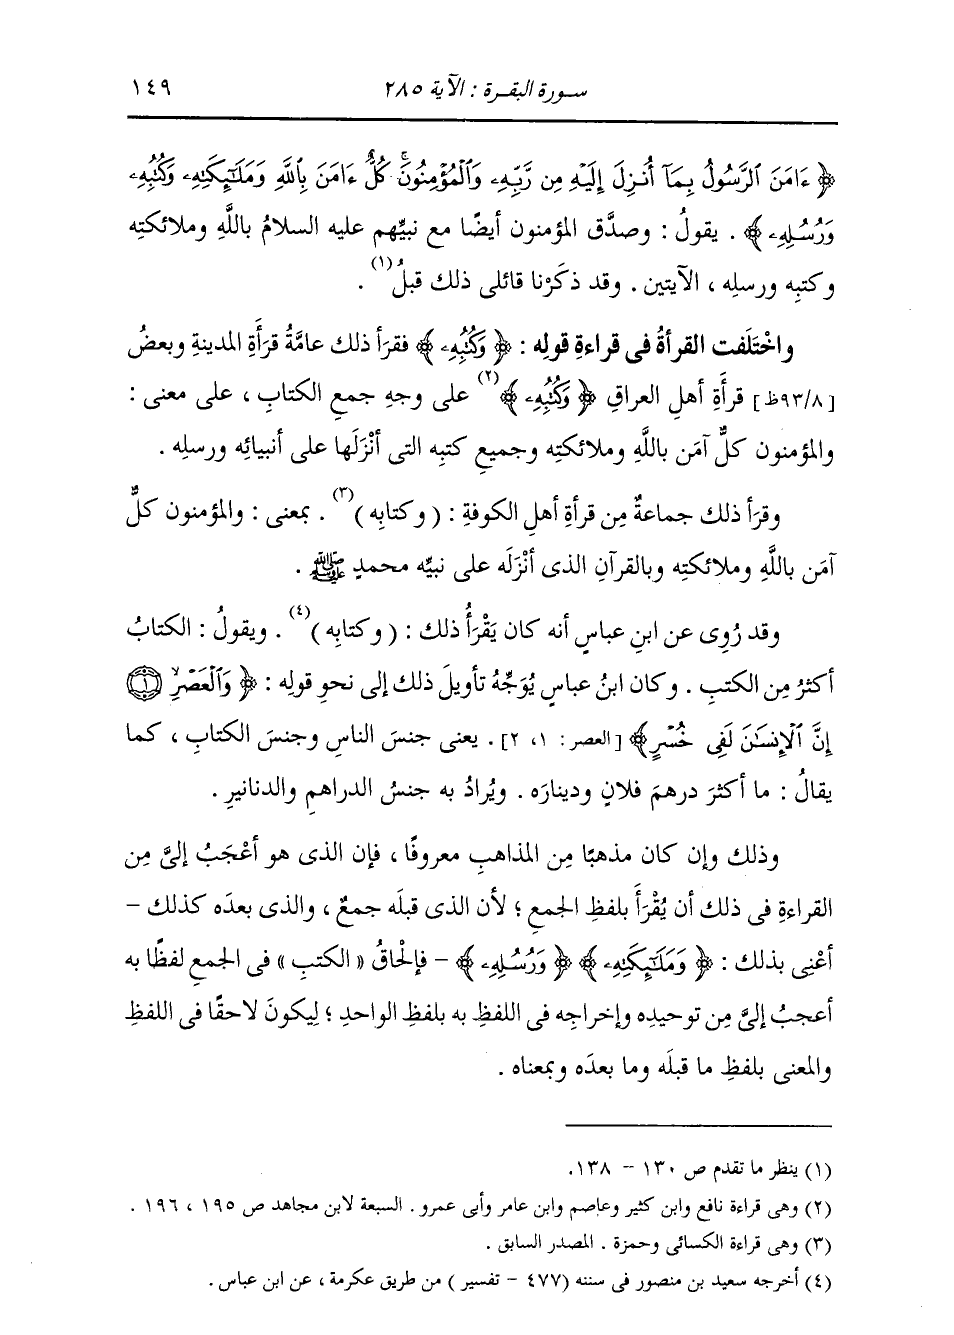 سورة البقرة : الآية ٢٨٥ ١٤٩
﴿ ءَامَنَ ٱلرَّسُولُ بِمَآ أُنزِلَ إِلَيْهِ مِن رَّبِّهِۦ وَٱلْمُؤْمِنُونَۚ كُلٌّ ءَامَنَ بِٱللَّهِ وَمَلَٰٓئِكَتِهِۦ وَكُتُبِهِۦ
وَرُسُلِهِۦ ﴾ . يقولُ : وصدَّق المؤمنون أيضًا مع نبيِّهم عليه السلامُ باللَّهِ وملائكتِه
وكتبِه ورسلِه ، الآيتين . وقد ذكَرْنا قائلى ذلك قبلُ(١) .
واخْتَلَفت القرأةُ فى قراءةِ قولِه : ﴿ وَكُتُبِهِۦ ﴾ فقرَأ ذلك عامَّةُ قرَأَةِ المدينةِ وبعضُ
[٩٣/٨ظ] قرَأَةِ أهلِ العراقِ ﴿ وَكُتُبِهِۦ ﴾(٢) على وجهِ جمعِ الكتابِ ، على معنى :
والمؤمنون كلٌّ آمَن باللَّهِ وملائكتِه وجميعِ كتبِه التى أنْزَلَها على أنبيائِه ورسلِه .
وقرَأ ذلك جماعةٌ مِن قرأةِ أهلِ الكوفةِ : ( وكتابِه )(٣) . بمعنى : والمؤمنون كلٌّ
آمَن باللَّهِ وملائكتِه وبالقرآنِ الذى أنْزَلَه على نبيِّه محمدٍ ﷺ .
وقد رُوِى عن ابنِ عباسٍ أنه كان يَقْرَأُ ذلك : ( وكتابِه )(٤) . ويقولُ : الكتابُ
أكثرُ مِن الكتبِ . وكان ابنُ عباسٍ يُوَجِّهُ تأويلَ ذلك إلى نحوِ قولِه : ﴿ وَٱلْعَصْرِۙ ١
إِنَّ ٱلْإِنسَٰنَ لَفِى خُسْرٍ ﴾ [العصر: ١، ٢] . يعنى جنسَ الناسِ وجنسَ الكتابِ ، كما
يقالُ : ما أكثرَ درهمَ فلانٍ ودينارَه . ويُرادُ به جنسُ الدراهمِ والدنانيرِ .
وذلك وإن كان مذهبًا مِن المذاهبِ معروفًا ، فإن الذى هو أعْجَبُ إلىَّ مِن
القراءةِ فى ذلك أن يُقْرَأَ بلفظِ الجمعِ ؛ لأن الذى قبلَه جمعٌ ، والذى بعدَه كذلك –
أعْنِى بذلك : ﴿ وَمَلَٰٓئِكَتِهِۦ ﴾ ﴿ وَرُسُلِهِۦ ﴾ – فإلْحاقُ « الكتبِ » فى الجمعِ لفظًا به
أعجبُ إلىَّ مِن توحيدِه وإخراجِه فى اللفظِ به بلفظِ الواحدِ ؛ لِيكونَ لاحقًا فى اللفظِ
والمعنى بلفظِ ما قبلَه وما بعدَه وبمعناه .
(١) ينظر ما تقدم ص ١٣٠ – ١٣٨.
(٢) وهى قراءة نافع وابن كثير وعاصم وابن عامر وأبى عمرو . السبعة لابن مجاهد ص ١٩٥ ، ١٩٦ .
(٣) وهى قراءة الكسائى وحمزة . المصدر السابق .
(٤) أخرجه سعيد بن منصور فى سننه (٤٧٧ – تفسير ) من طريق عكرمة ، عن ابن عباس .